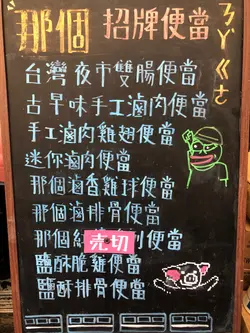 那個 招牌便當
ㄋㄚˇㄍㄜ˙
台灣夜市雙腸便當
古早味手工滷肉便當
手工滷肉雞翅便當
迷你滷肉便當
那個滷香雞球便當
那個滷排骨便當
那個 售切 便當
鹽酥脆雞便當
鹽酥排骨便當